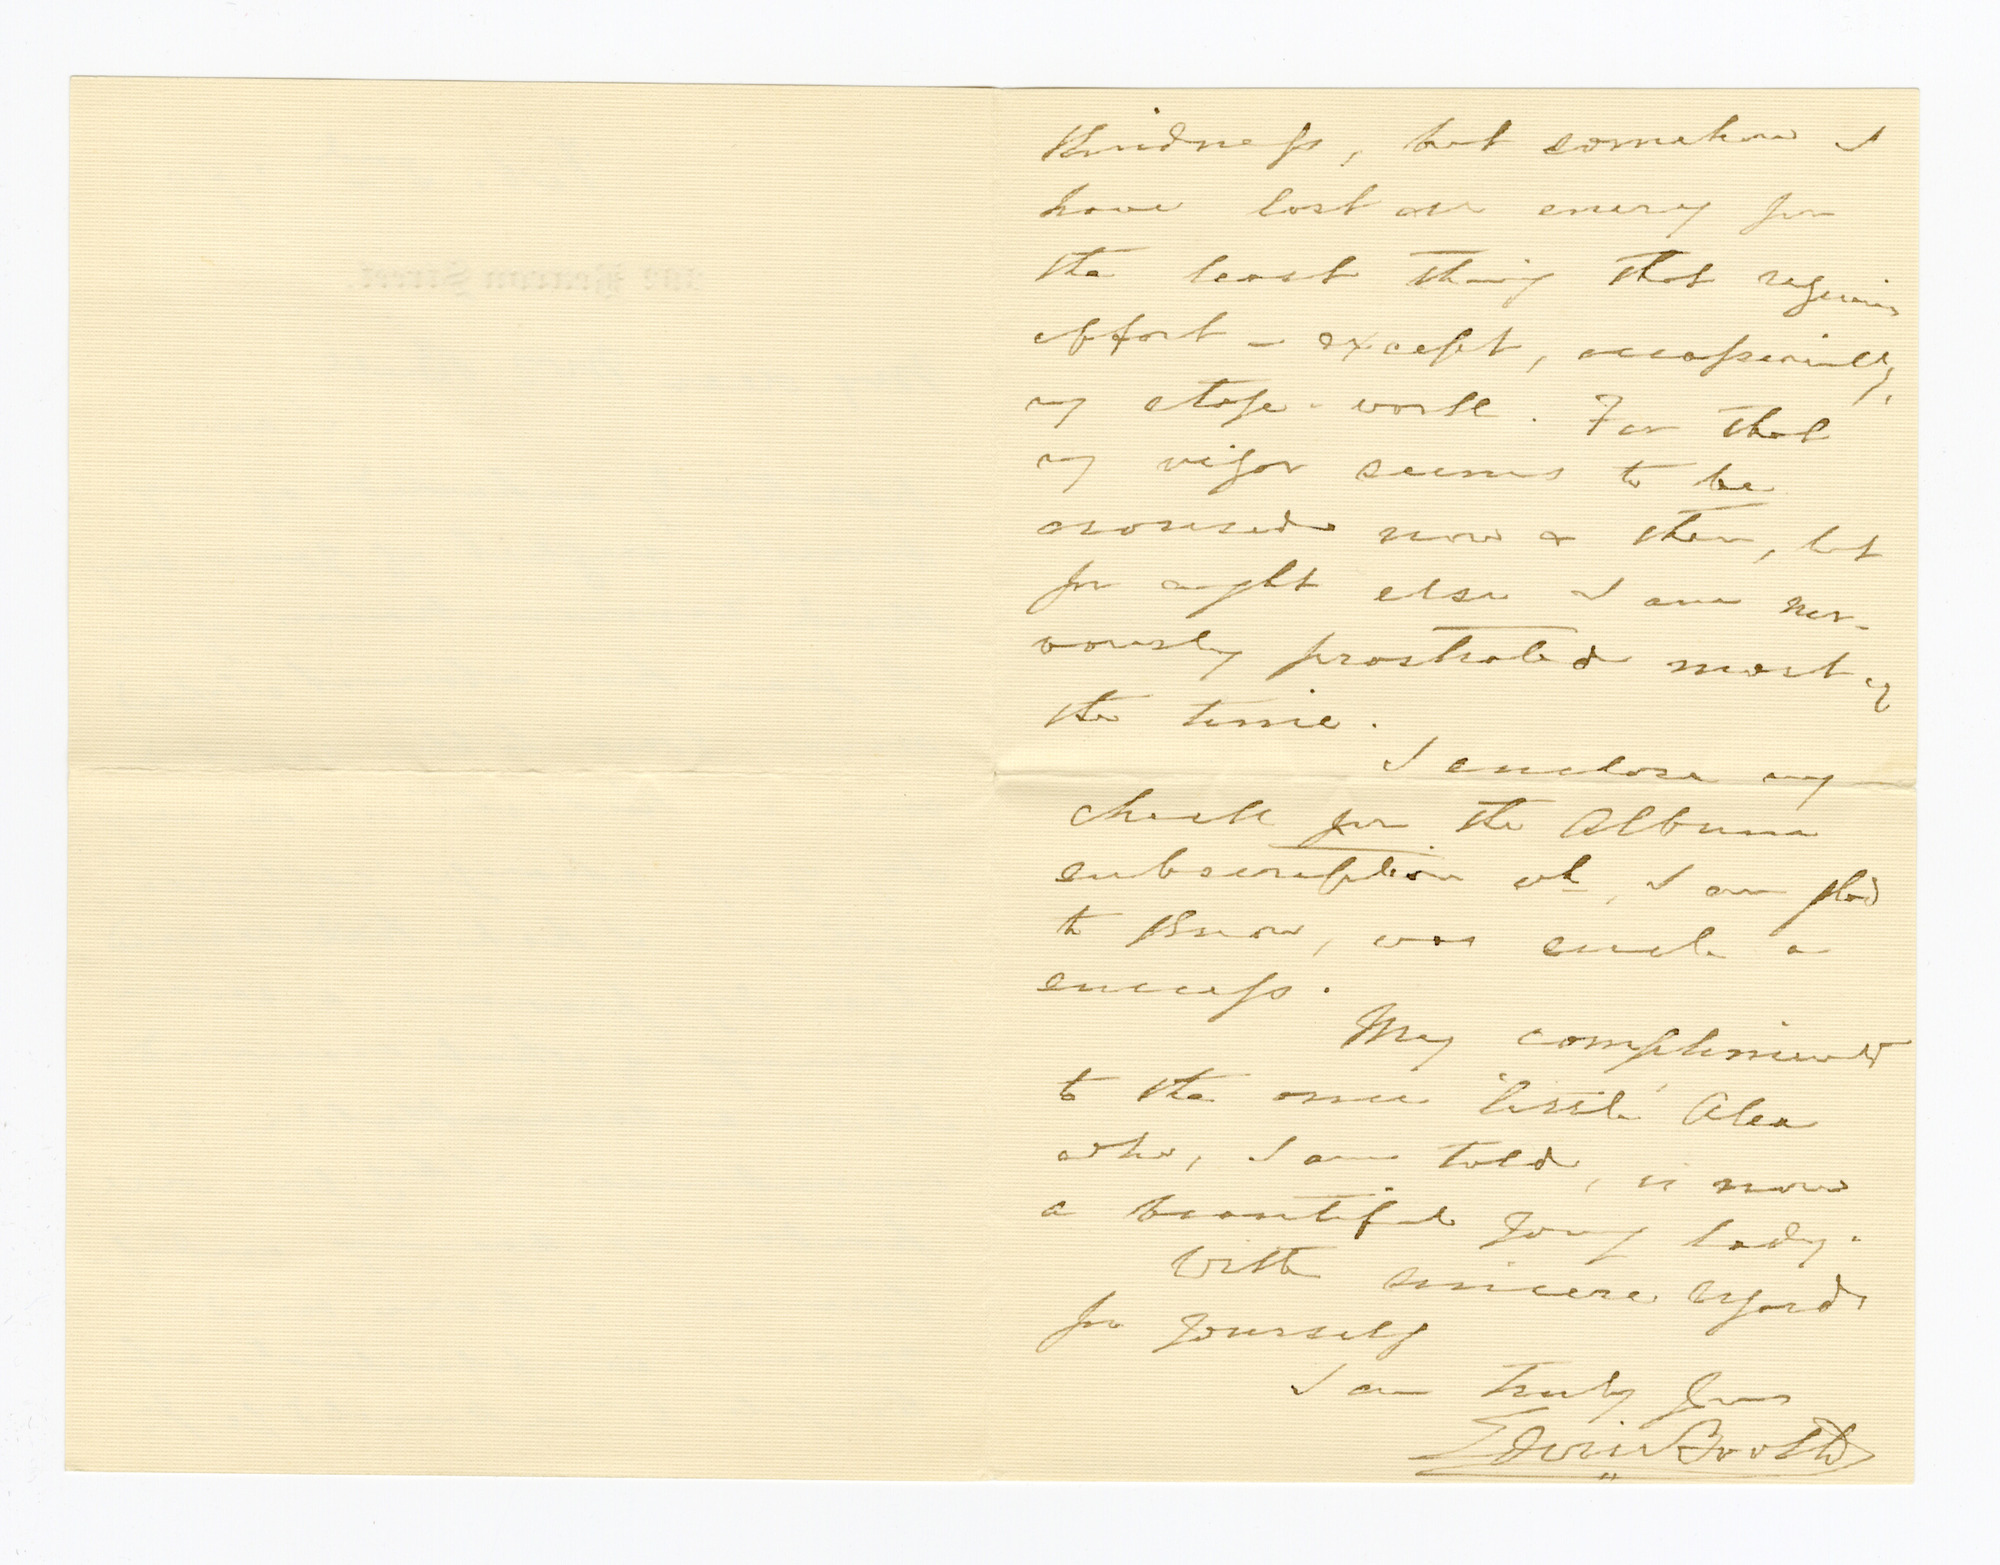 Kindness, but somehow I
have lost all energy for
the least thing that requires
effort – except, occassionally,
my stage-work. For that
my vigor seems to be
aroused now & then, but
for aught else I am ner-
vously prostrated most of
the time.
I enclose my
check for the Album
subscription wh, I am glad
to know, was such a
success.
My compliments
to the once 'little' Alea
who, I am told, is now
a beautiful young lady.
With sincere regards
for yourself
I am truly yours
Edwin Booth